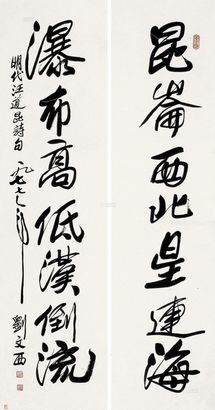 昆崙西北星連海
瀑布高低漢倒流
明代汪道昆詩句
一九七七年
劉文西